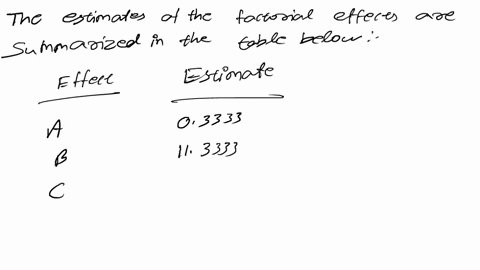 The estimates of the factorial effects are
Summarized in the table below:
Effect Estimate
A 0.3333
B 11.3333
C